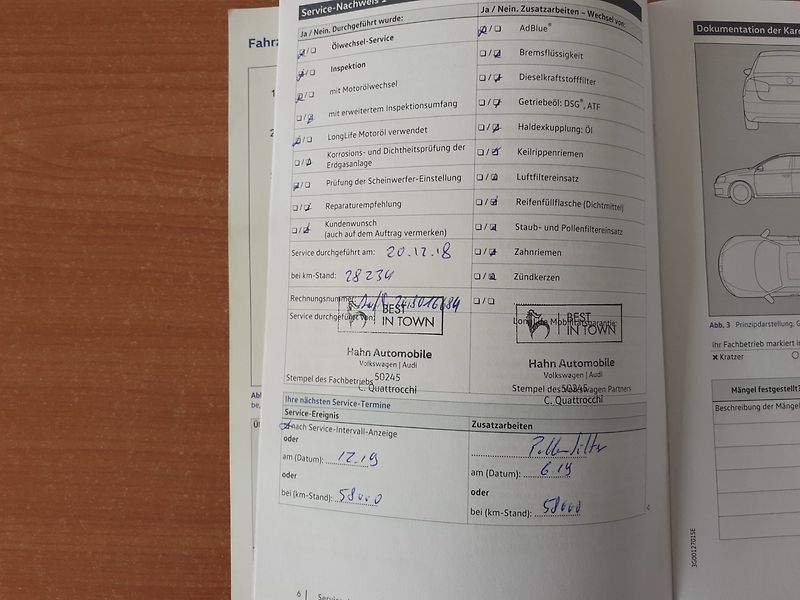 Service-Nachweis 1
Ja / Nein. Durchgeführt wurde:
Ölwechsel-Service
Inspektion
mit Motorölwechsel
mit erweitertem Inspektionsumfang
LongLife Motoröl verwendet
Korrosions- und Dichtheitsprüfung der
Erdgasanlage
Prüfung der Scheinwerfer-Einstellung
Reparaturempfehlung
Kundenwunsch
(auch auf dem Auftrag vermerken)
Service durchgeführt am: 20.12.18
bei km-Stand: 28234
Rechnungsnummer:
Service durchgeführt von:
BEST
IN TOWN
Hahn Automobile
Volkswagen | Audi
Stempel des Fachbetriebs
50245
C. Quattrocchi
Ja / Nein. Zusatzarbeiten – Wechsel von:
AdBlue®
Bremsflüssigkeit
Dieselkraftstofffilter
Getriebeöl: DSG®, ATF
Haldexkupplung: Öl
Keilrippenriemen
Luftfiltereinsatz
Reifenfüllflasche (Dichtmittel)
Staub- und Pollenfiltereinsatz
Zahnriemen
Zündkerzen
LongLife Mobilitätsgarantie:
BEST
IN TOWN
Hahn Automobile
Volkswagen | Audi
Stempel des Volkswagen Partners
50245
C. Quattrocchi
Ihre nächsten Service-Termine
Service-Ereignis
nach Service-Intervall-Anzeige
oder
am (Datum): 12.19
oder
bei (km-Stand): 58000
Zusatzarbeiten
Pollenfilter
am (Datum): 6.19
oder
bei (km-Stand): 58000
6 |
Dokumentation der Karo
Abb. 3 Prinzipdarstellung.
Ihr Fachbetrieb markiert
× Kratzer
Mängel festgestellt?
Beschreibung der Mängel
3G0012701SE